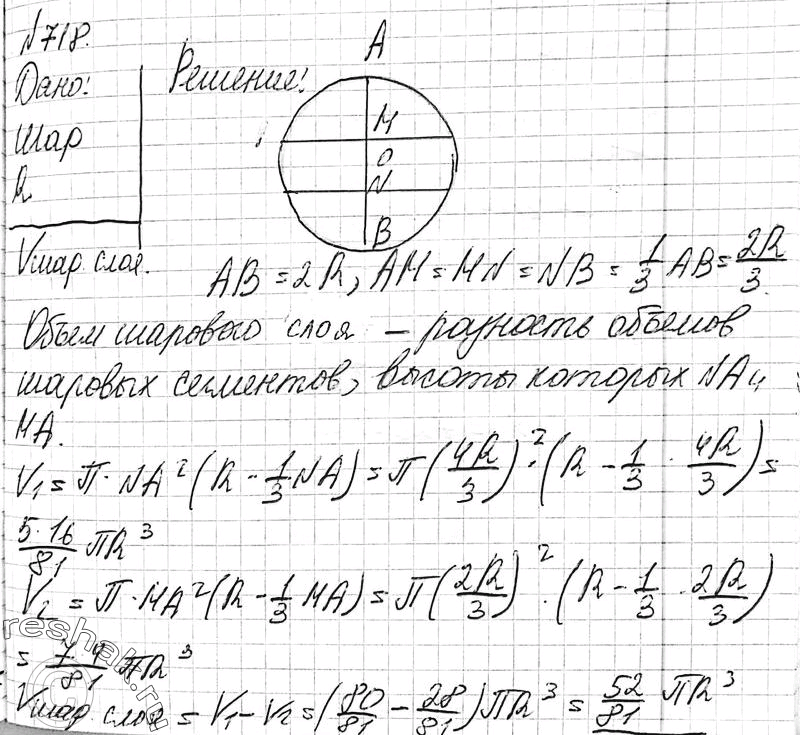 №718.
Дано:
Шар
R
Vшар. слоя.
Решение:
A
M
O
N
B
AB = 2R, AM = MN = NB = 1/3 AB = 2R/3.
Объем шарового слоя – разность объемов
шаровых сегментов, высоты которых NA и
MA.
V₁ = π · NA² (R - 1/3 NA) = π (4R/3)² · (R - 1/3 · 4R/3) =
5·16/81 πR³
V₂ = π · MA² (R - 1/3 MA) = π (2R/3)² · (R - 1/3 · 2R/3)
= 7·4/81 πR³
Vшар слоя = V₁ - V₂ = (80/81 - 28/81) πR³ = 52/81 πR³
reshak.ru